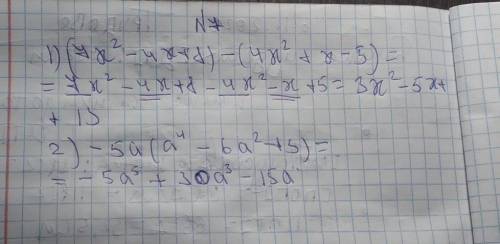 N7
1) (7x² - 4x + 8) - (4x² + x - 5) =
= 7x² - 4x + 8 - 4x² - x + 5 = 3x² - 5x +
+ 13
2) - 5a (a⁴ - 6a² + 3) =
= - 5a⁵ + 30a³ - 15a